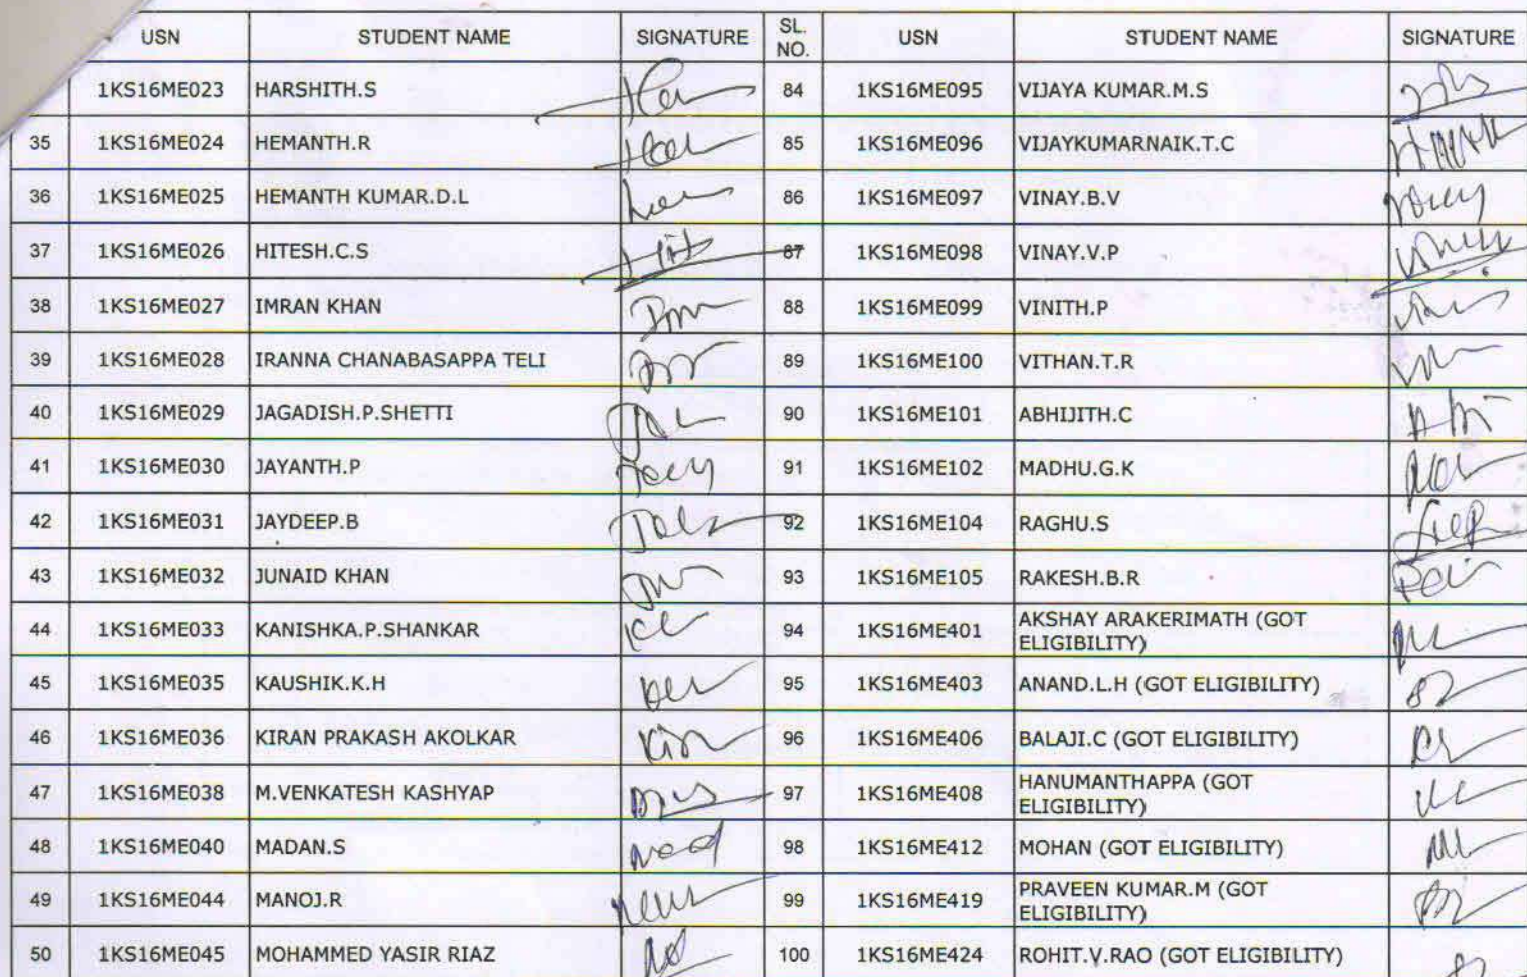 USN STUDENT NAME SIGNATURE SL. NO. USN STUDENT NAME SIGNATURE
1KS16ME023 HARSHITH.S 84 1KS16ME095 VIJAYA KUMAR.M.S
35 1KS16ME024 HEMANTH.R 85 1KS16ME096 VIJAYKUMARNAIK.T.C
36 1KS16ME025 HEMANTH KUMAR.D.L 86 1KS16ME097 VINAY.B.V
37 1KS16ME026 HITESH.C.S 87 1KS16ME098 VINAY.V.P
38 1KS16ME027 IMRAN KHAN 88 1KS16ME099 VINITH.P
39 1KS16ME028 IRANNA CHANABASAPPA TELI 89 1KS16ME100 VITHAN.T.R
40 1KS16ME029 JAGADISH.P.SHETTI 90 1KS16ME101 ABHIJITH.C
41 1KS16ME030 JAYANTH.P 91 1KS16ME102 MADHU.G.K
42 1KS16ME031 JAYDEEP.B 92 1KS16ME104 RAGHU.S
43 1KS16ME032 JUNAID KHAN 93 1KS16ME105 RAKESH.B.R
44 1KS16ME033 KANISHKA.P.SHANKAR 94 1KS16ME401 AKSHAY ARAKERIMATH (GOT
ELIGIBILITY)
45 1KS16ME035 KAUSHIK.K.H 95 1KS16ME403 ANAND.L.H (GOT ELIGIBILITY)
46 1KS16ME036 KIRAN PRAKASH AKOLKAR 96 1KS16ME406 BALAJI.C (GOT ELIGIBILITY)
47 1KS16ME038 M.VENKATESH KASHYAP 97 1KS16ME408 HANUMANTHAPPA (GOT
ELIGIBILITY)
48 1KS16ME040 MADAN.S 98 1KS16ME412 MOHAN (GOT ELIGIBILITY)
49 1KS16ME044 MANOJ.R 99 1KS16ME419 PRAVEEN KUMAR.M (GOT
ELIGIBILITY)
50 1KS16ME045 MOHAMMED YASIR RIAZ 100 1KS16ME424 ROHIT.V.RAO (GOT ELIGIBILITY)